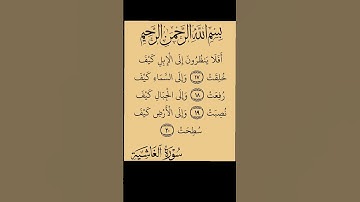 بِسْمِ اللَّهِ الرَّحْمَٰنِ الرَّحِيمِ
أَفَلَا يَنظُرُونَ إِلَى الْإِبِلِ كَيْفَ
خُلِقَتْ ١٧ وَإِلَى السَّمَاءِ كَيْفَ
رُفِعَتْ ١٨ وَإِلَى الْجِبَالِ كَيْفَ
نُصِبَتْ ١٩ وَإِلَى الْأَرْضِ كَيْفَ
سُطِحَتْ ٢٠
سُورَةُ الغَاشِيَة